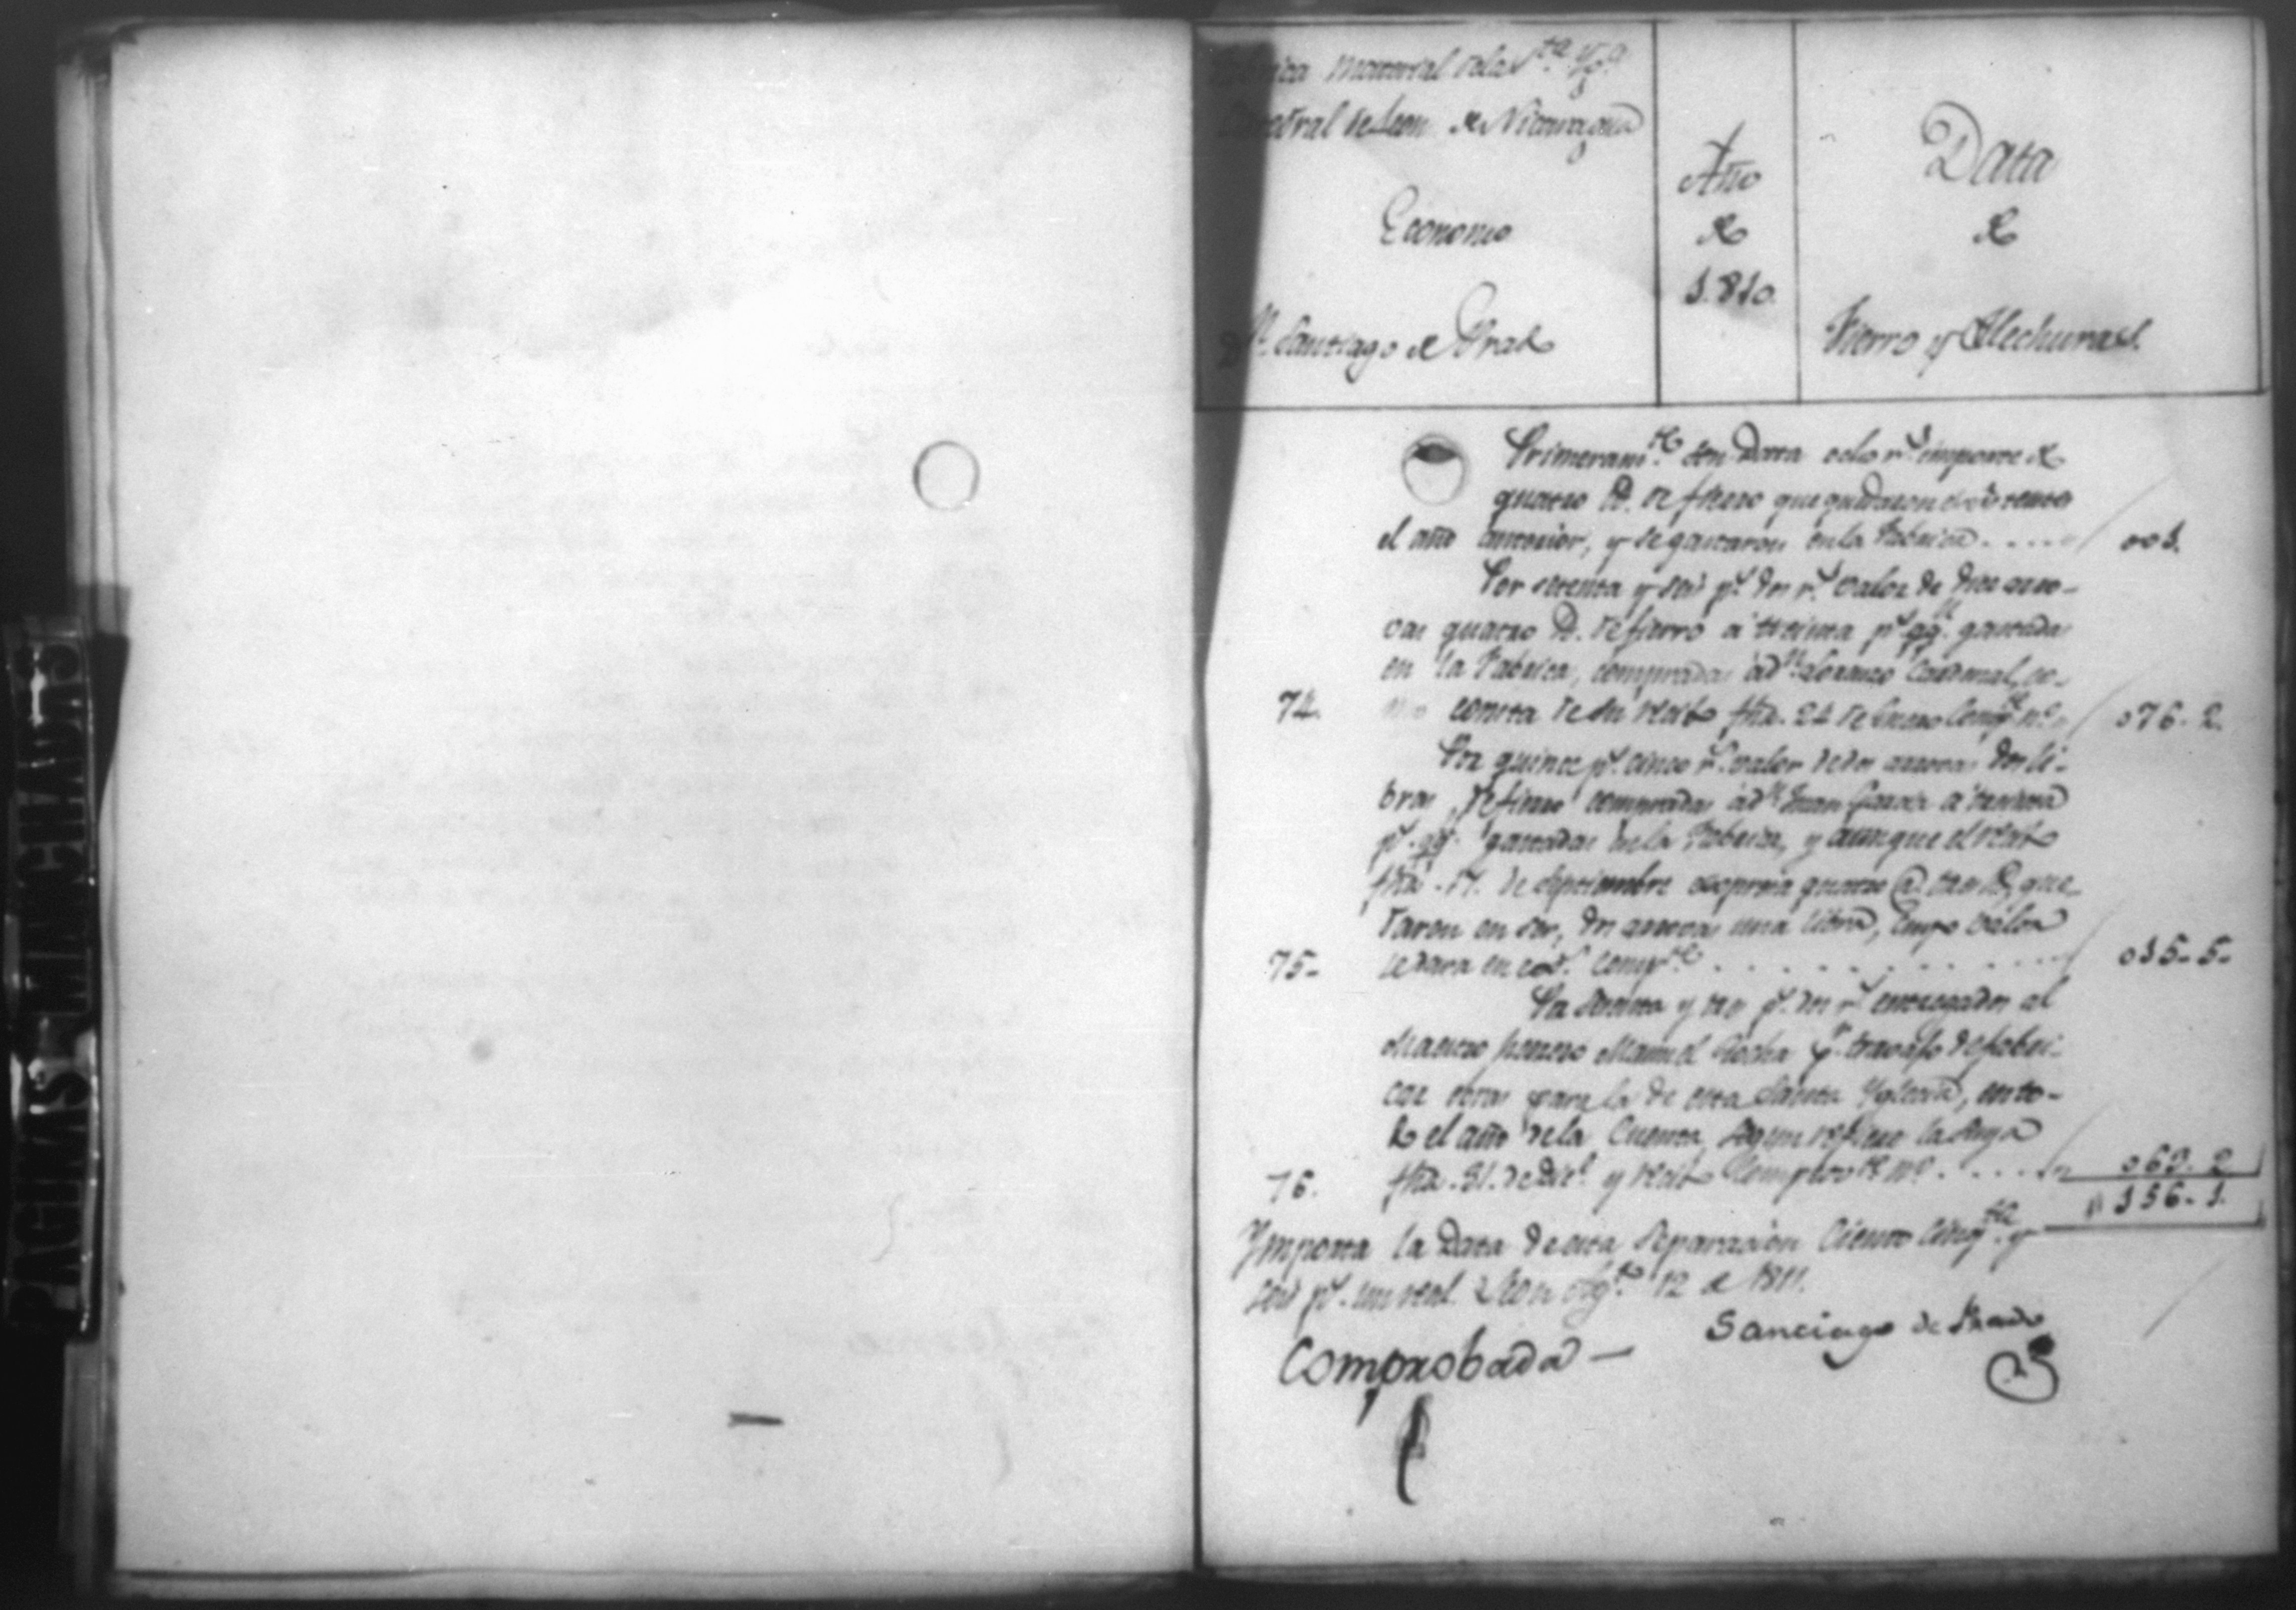 PAGINAS MANCHADAS
Material dela Sta. Yga.
Catedral de Leon de Nicaragua
Economo
Dn. Santiago de Prado
Año
de
1.810.
Data
de
Fierro y Hechuras.
Primeramte. son Data ocho rs. importe de
quatro lb. de fierro que quedaron existentes
el año anterior, y se gastaron en la Fabrica..... 001.
Por setenta y seis ps. dos rs. valor de diez arro-
vas quatro lb. de fierro á treinta ps. qql. gastadas
en la Fabrica, compradas á dn. Lorenzo Cardenal, co-
74. mo consta de su recibo fha. 24 de Enero Compte. no. 076.. 2.
Por quince ps. cinco rs. valor de dos arrovas dos li-
bras de fierro compradas á dn. Juan á treinta
ps. qql. gastadas en la Fabrica, y aunque el recibo
fha. 17. de Septiembre expresa quatro @ tres lb, que-
daron en ser, dos arrovas una libra, Cuyo valor
75- se dara en compte. ........ 015- 5-
Por sesenta y tres ps. dos rs. entregados al
Maestro herrero Manuel Rocha pr. travajo de fabri-
car obras para la de esta Santa Yglecia, en to-
do el año dela Cuenta segun refiere la suya
76. fha. 31. de Dice. y recibo Comprovte. no...... 063. 2
156- 1.
Ymporta la Data de esta Separacion Ciento Cinqta. y
seis ps. un real. Leon Agto. 12 de 1811.
Santiago de Prado
Comprobada —